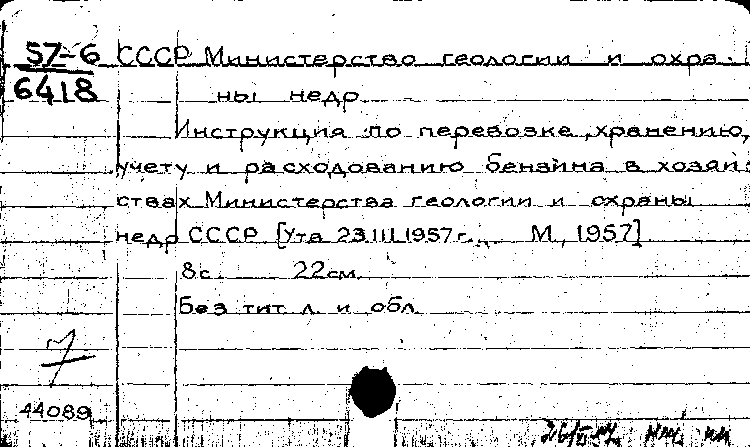 57-6 СССР Министерство геологии и охра-
6418 ны недр
Инструкция по перевозке, хранению,
учету и расходованию бензина в хозяй-
ствах Министерства геологии и охраны
недр СССР [Утв 23.III.1957г. М, 1957]
8с. 22см.
Без тит л. и обл.
44089